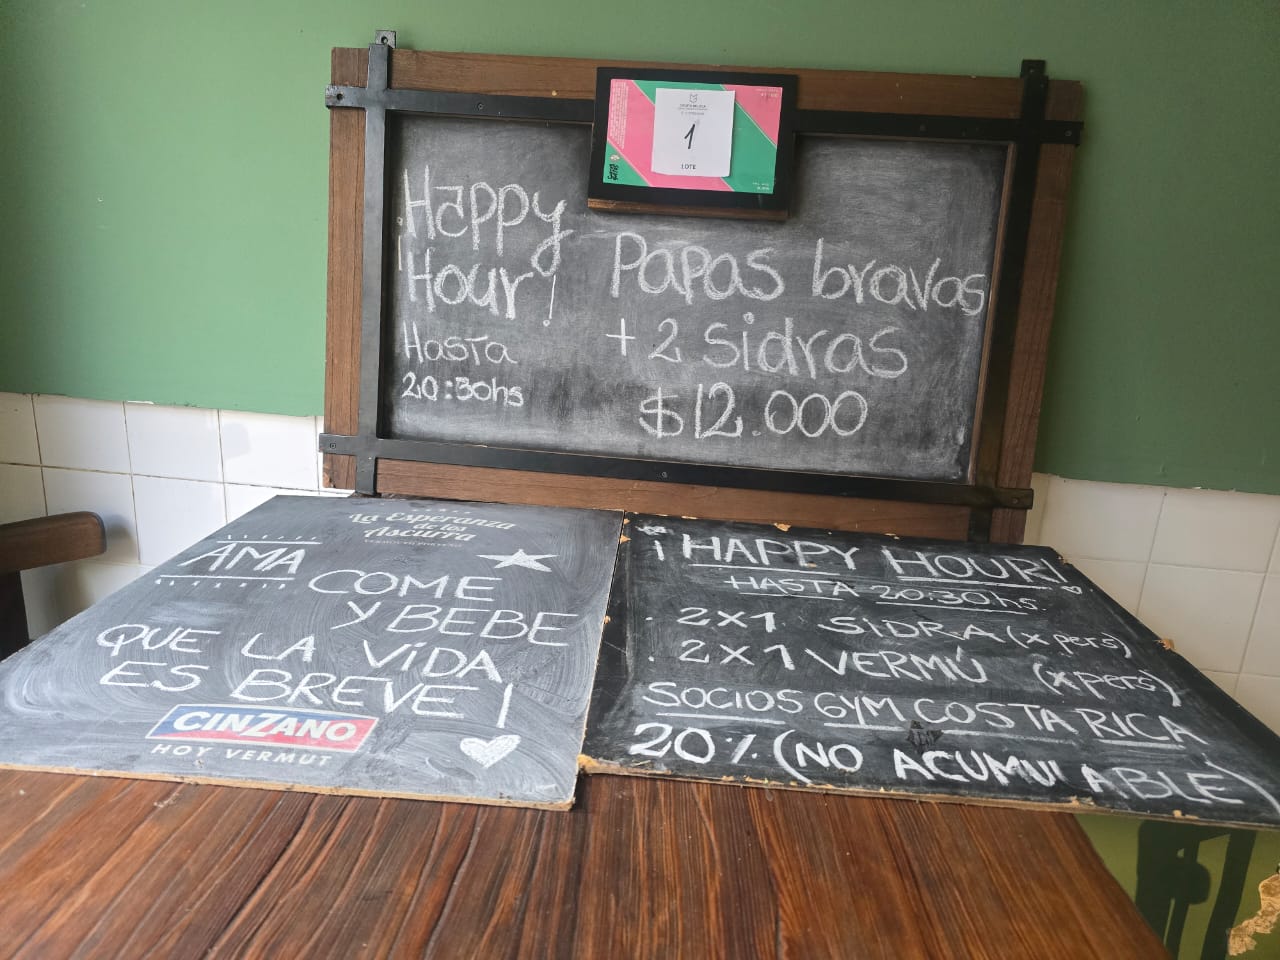 1
LOTE
¡Happy
Hour!
Hasta
20:30hs
Papas bravas
+ 2 sidras
$12.000
La Esperanza
de los
Ascurra
AMA
COME
Y BEBE
QUE LA VIDA
ES BREVE!
CINZANO
HOY VERMUT
¡HAPPY HOUR!
HASTA 20:30hs.
. 2x1 SIDRA (x pers)
. 2x1 VERMÚ (x pers)
SOCIOS GYM COSTA RICA
20% (NO ACUMULABLE)